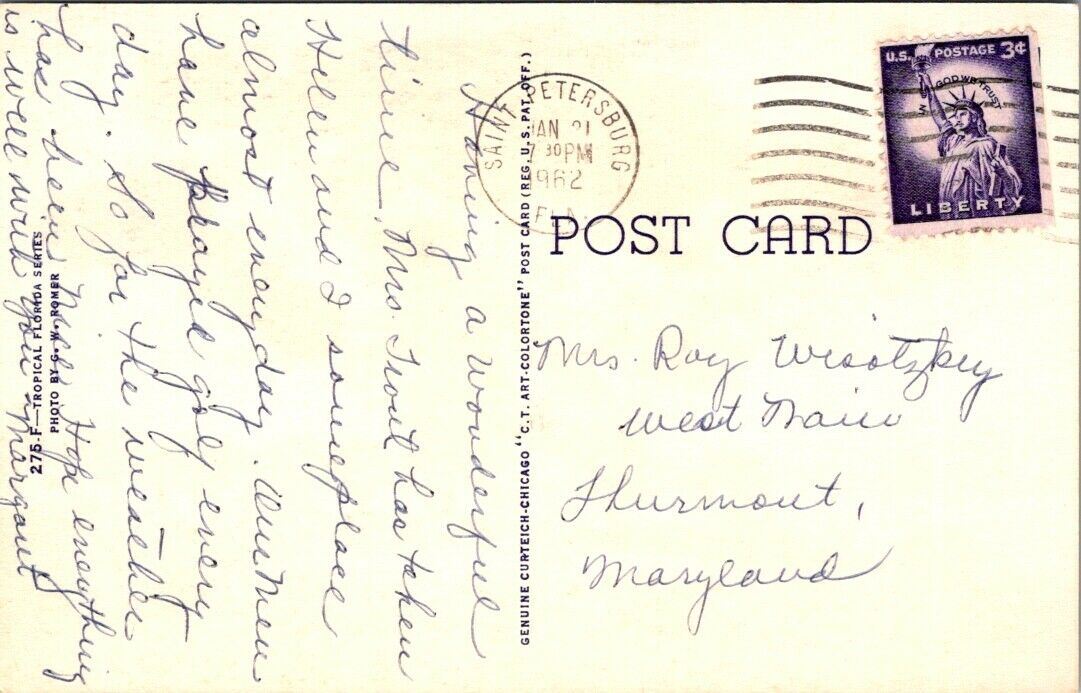 Having a wonderful
time. Mrs. Trout has taken
Helen and I someplace
almost everyday. Our Men
have played golf every
day. So far the weather
has been nice. Hope everything
is well with you. Margaret
275-F—TROPICAL FLORIDA SERIES
PHOTO BY G. W. ROMER
GENUINE CURTEICH-CHICAGO "C.T. ART-COLORTONE" POST CARD (REG. U.S. PAT. OFF.)
SAINT PETERSBURG
JAN 21
7 30 PM
1962
FLA.
U.S. POSTAGE 3¢
IN GOD WE TRUST
LIBERTY
POST CARD
Mrs. Roy Wisotzkey
West Main
Thurmont,
Maryland